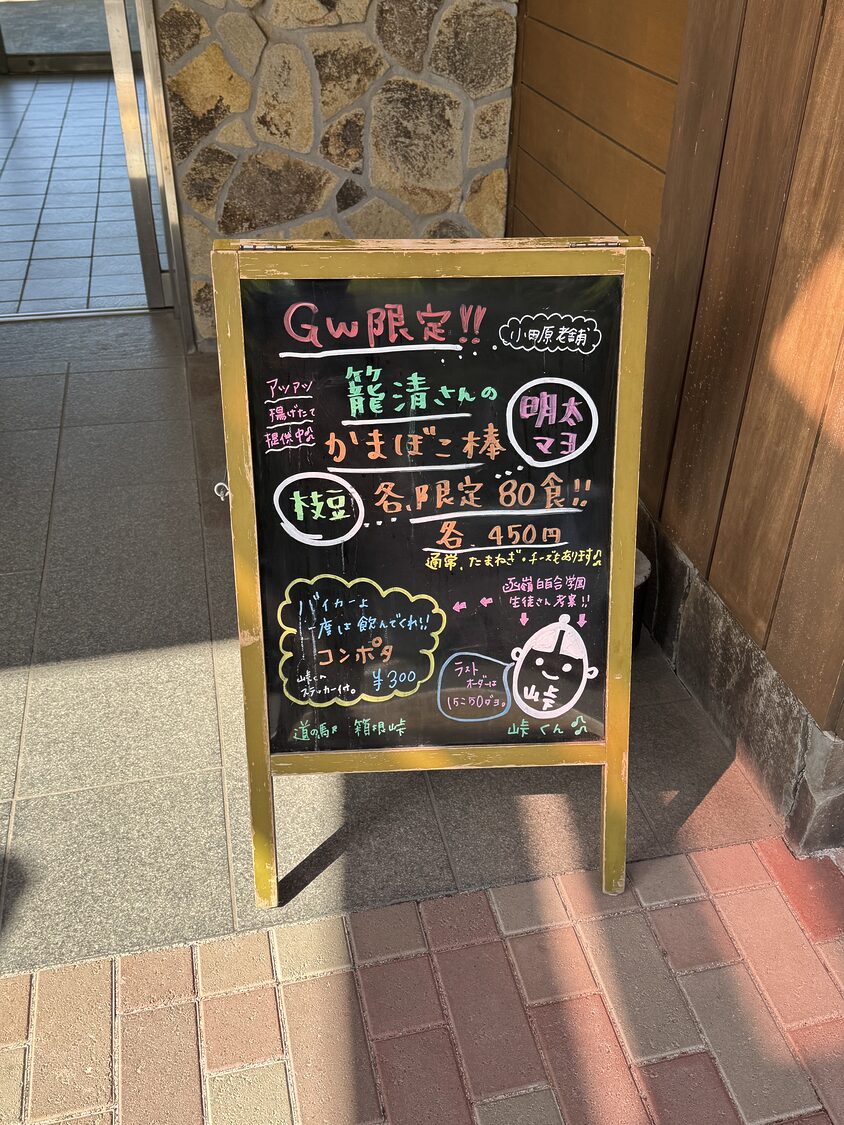 GW限定!!
小田原老舗
アツアツ
揚げたて
提供中♫
籠清さんの
かまぼこ棒
明太
マヨ
枝豆
各、限定 80食!!
各、450円
通常、たまねぎ・チーズもあります♫
函嶺白百合学園
生徒さん考案!!
バイカーよ
一度は飲んでくれ!!
コンポタ
¥300
峠くん
ステッカー付。
ラスト
オーダーは
15こ50ダヨ。
峠
道の駅 箱根峠
峠くん♫